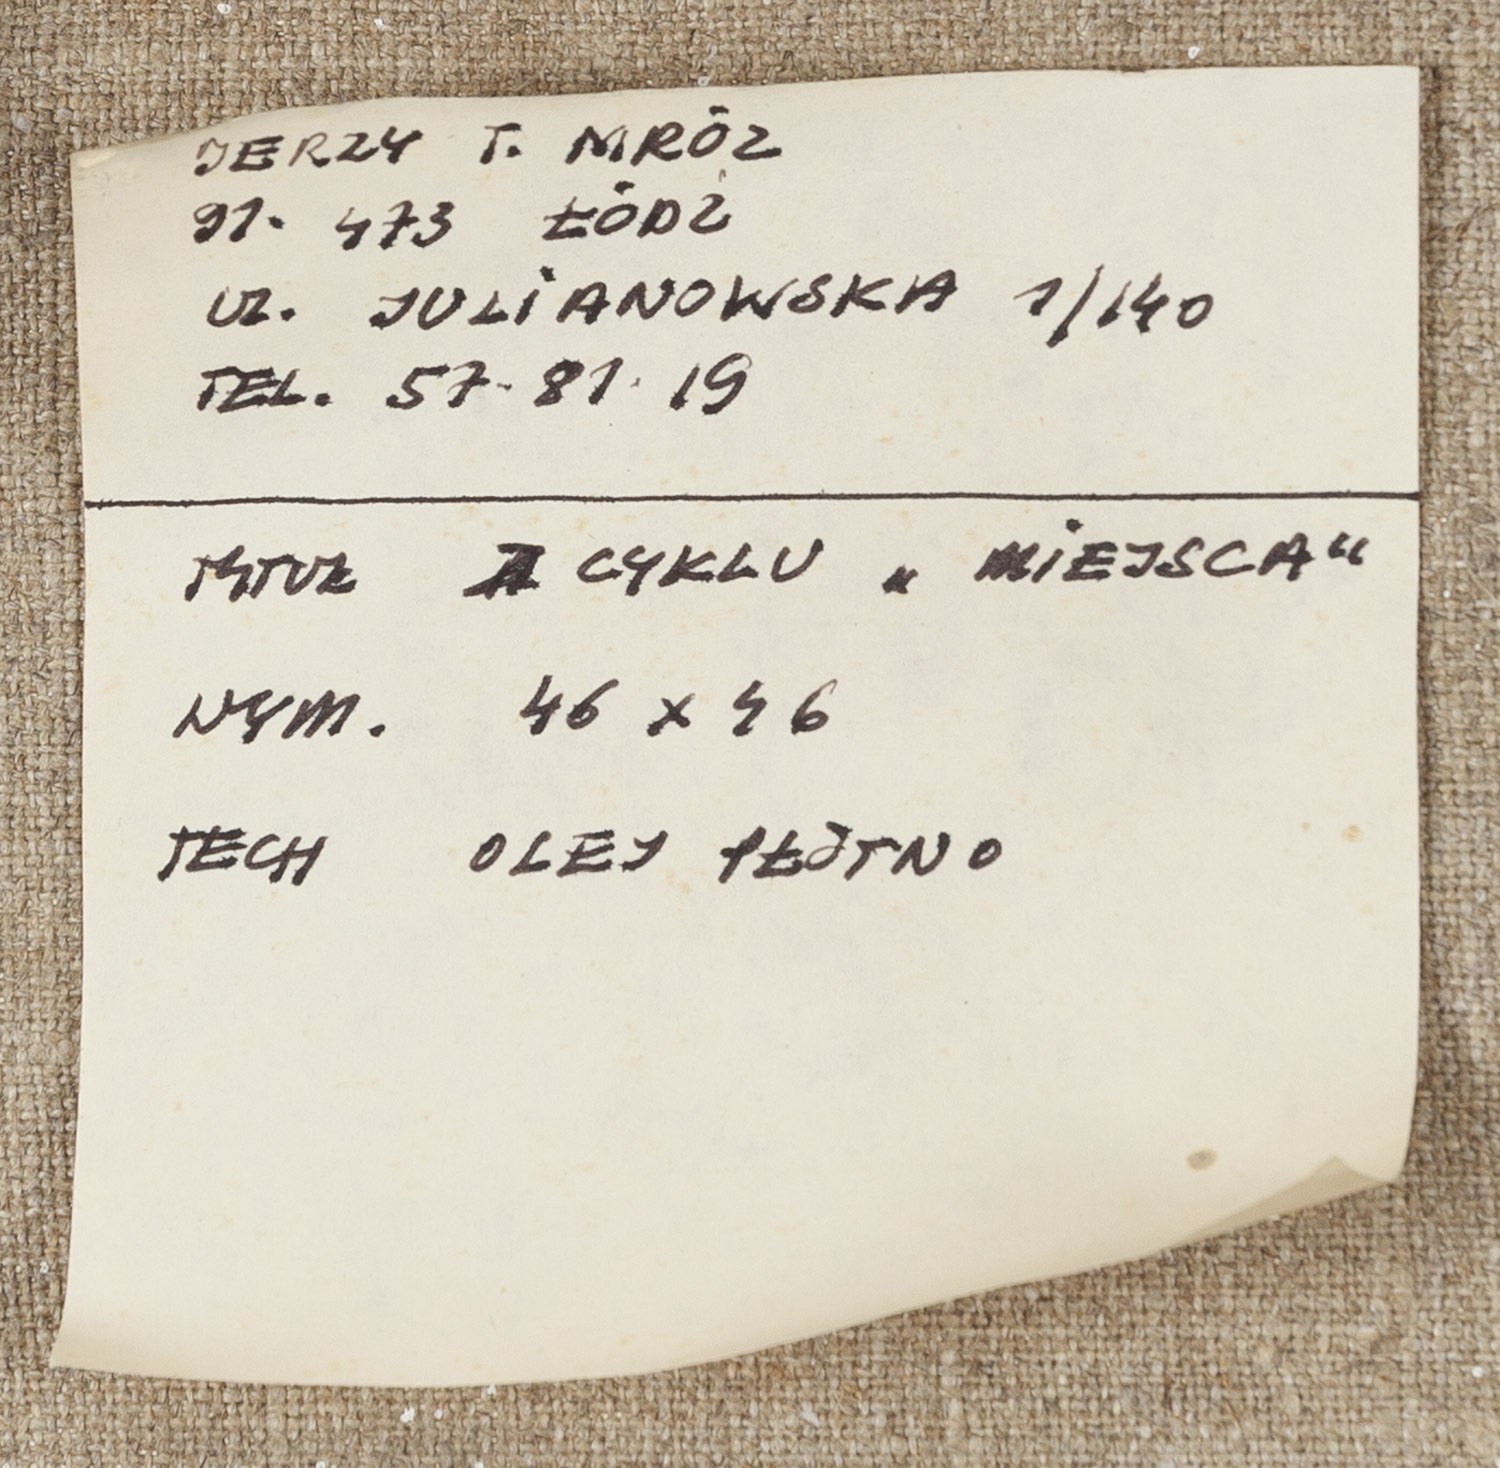 JERZY T. MRÓZ
91-473 ŁÓDŹ
UL. JULIANOWSKA 1/140
TEL. 57-81-19
TYTUŁ Z CYKLU „MIEJSCA“
WYM. 46 x 46
TECH OLEJ PŁÓTNO